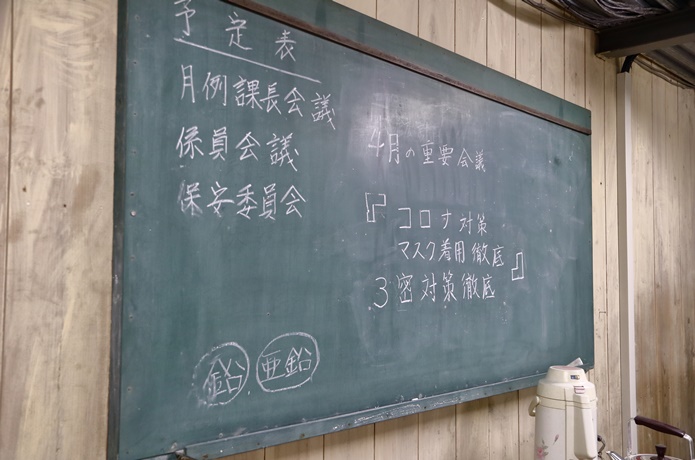 予定表
月例課長会議
係員会議
保安委員会
鉛 亜鉛
4月の重要会議
『コロナ対策
マスク着用徹底』
3密対策徹底